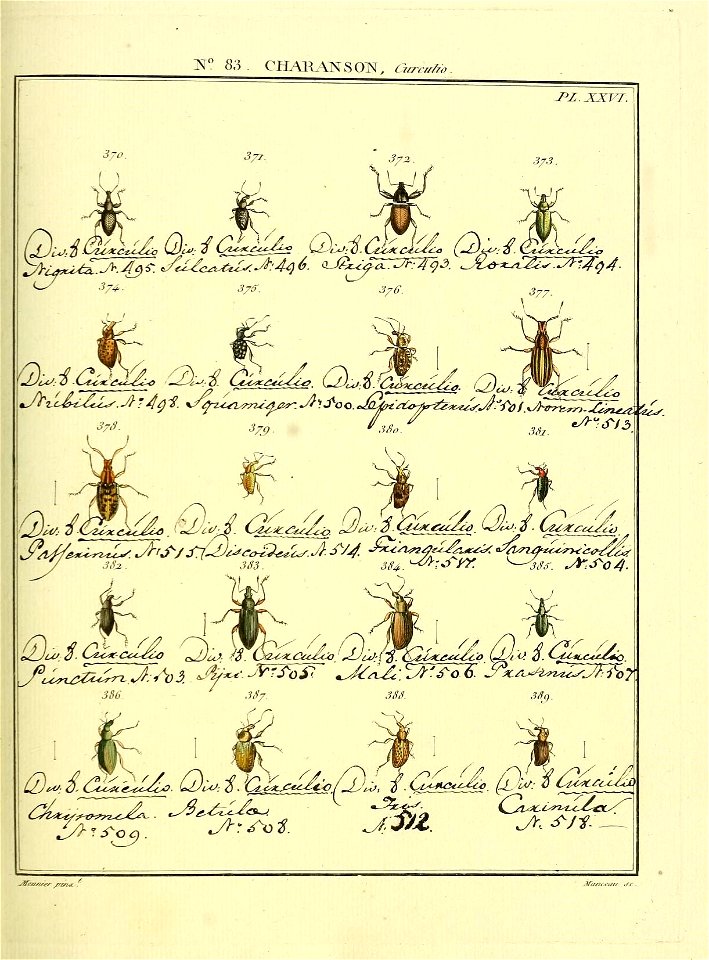 Nº 83. CHARANSON, Curculio.
PL. XXVI.
370. 371. 372. 373.
Div. 8 Curculio Div. 8 Curculio Div. 8 Curculio Div. 8 Curculio
Nigrita. Nº 495. Sulcatus. Nº 496. Striga. Nº 493. Roralis. Nº 494.
374. 375. 376. 377.
Div. 8. Curculio Div. 8 Curculio. Div. 8 Curculio. Div. 8 Curculio
Nubilus. Nº 498. Squamiger. Nº 500. Lepidopterus Nº 501. Novem-Lineatus.
Nº 513.
378. 379. 380. 381.
Div. 8 Curculio. Div. 8 Curculio. Div. 8 Curculio. Div. 8 Curculio.
Nº 515. Discoideus. Nº 514. Triangularis. Sanguinicollis
Nº 517. Nº 504.
382. 383. 384. 385.
Div. 8. Curculio Div. 8 Curculio. Div. 8 Curculio. Div. 8 Curculio.
Punctum Nº 503 Pyri. Nº 505. Mali. Nº 506. Prasinus. Nº 507.
386. 387. 388. 389.
Div. 8. Curculio. Div. 8. Curculio Div. 8 Curculio. Div. 8 Curculio
Chrysomela. Betula Carinula.
Nº 509. Nº 508. Nº 512. Nº 518.
Meunier pinx.t Manceau sc.